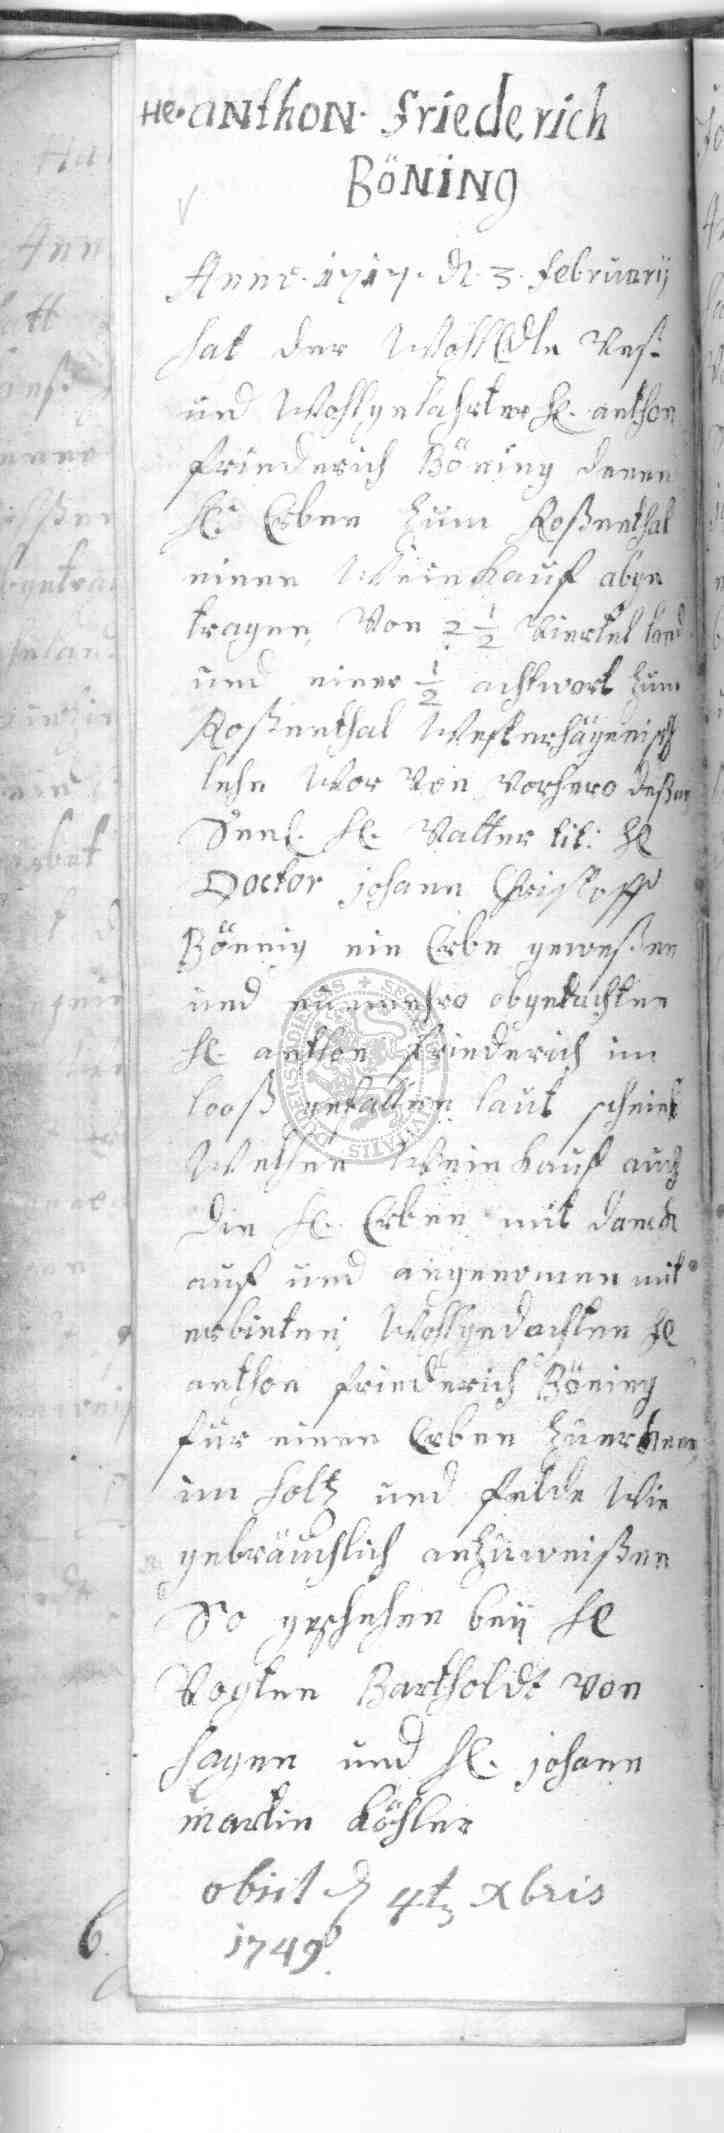 He. anthon. friederich
Böning
Anno. 1717. d. 3. february
hat der WohlEdle Vest
und Wohlgelahrter H. anthon
friederich Böning denen
H. Erben zum Roßenthal
einen Weinkauf abge
tragen, Von 2 1/2 Viertel land
und einer 1/2 achtwort zum
Roßenthal Westerhägenisch
lehn Wor Von Vorhero deßen
Seel. H. Vatter tit: H
Doctor johann Christoff
Bönnig ein Erbe geweßen
und nunmehro obgedachten
H. anthon friederich im
looß gefallen laut schein
Welchen Weinkauf auch
die H. Erben mit danck
auf und angenommen mit
erbieten Wohlgedachten H
anthon friederich Böning
für einen Erben
im holtz und felde Wie
gebräuchlich anzuweißen
So geschehen beÿ H
Vogten Bartholdt Von
hagen und H. johann
martin Köhler
obiit d 4t xbris
1749
6.